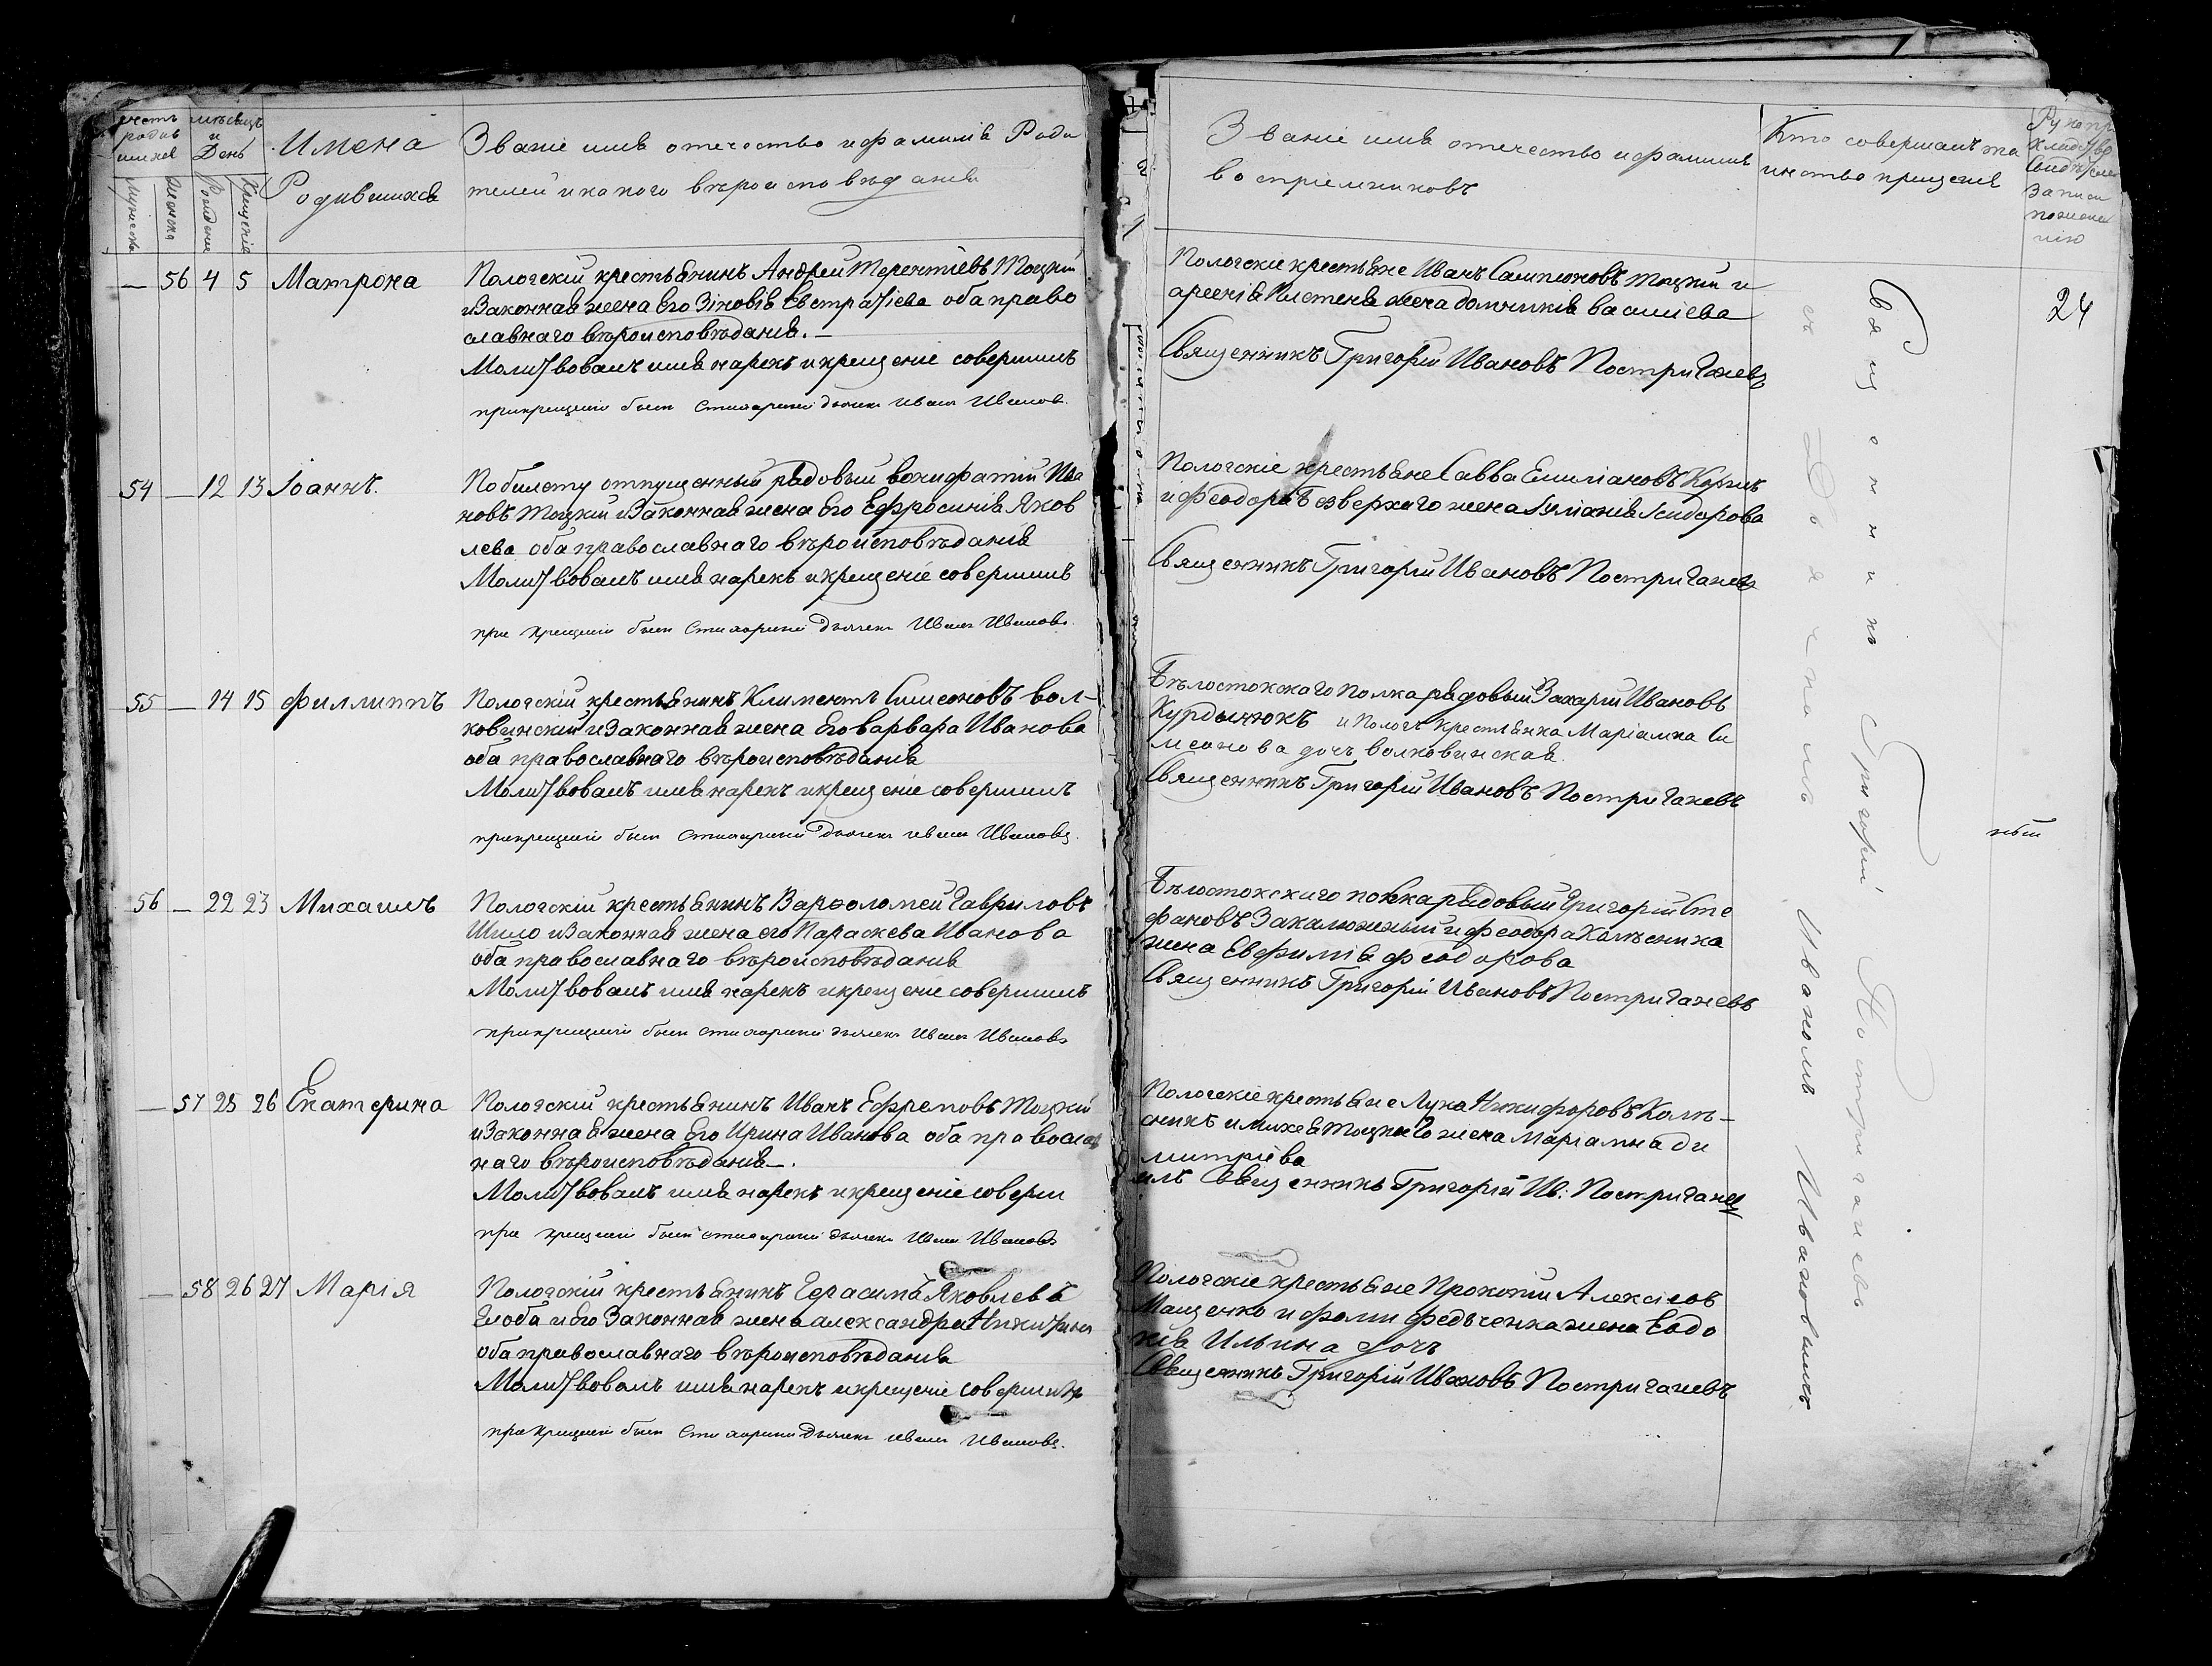 Имена
Родившихся
Званіе имя отечество и фамилія Роди
телей и какого вѣроисповѣданія
Мужеска
Женска
Рожденія
Крещенія
— 56 4 5 Матрона
Пологскій крестьянинъ Андрей Терентіевъ Тоцкій
и Законная жена Его Зіновія Евстратіева оба право
славнаго вѣроисповѣданія. —
Молитвовалъ имя нарекъ и крещеніе совершилъ
при крещеніи былъ Стихарный дьячекъ Иванъ Ивановъ.
54 — 12 13 Іоаннъ.
По билету отпущенный рядовый Вонифатій Ива
новъ Тоцкій и Законная жена Его Ефросинія Яков
лева оба православнаго вѣроисповѣданія
Молитвовалъ имя нарекъ и крещеніе совершилъ
при крещеніи былъ Стихарный Дьячекъ Иванъ Ивановъ.
55 — 14 15 Филлиппъ
Пологскій крестьянинъ Климентъ Симеоновъ Вол-
ковинскій и Законная жена Его Варвара Иванова
оба православнаго вѣроисповѣданія
Молитвовалъ имя нарекъ и крещеніе совершилъ
при крещеніи былъ Стихарный Дьячекъ Иванъ Ивановъ.
56 — 22 23 Михаилъ
Пологскій крестьянинъ Варѳоломей Гавриловъ
Шило и Законная жена его Параскева Иванова
оба православнаго вѣроисповѣданія
Молитвовалъ имя нарекъ и крещеніе совершилъ
при крещеніи былъ стихарный дьячекъ Иванъ Ивановъ
— 57 25 26 Екатерина
Пологскій крестьянинъ Иванъ Ефремовъ Тоцкій
и Законная жена Его Ирина Иванова оба православ
наго вѣроисповѣданія —.
Молитвовалъ имя нарекъ и крещеніе соверши
при крещеніи былъ стихарный дьячекъ Иванъ Ивановъ
— 58 26 27 Марія
Пологскій крестьянинъ Герасимъ Яковлевъ
Глоба и Его Законная жена Александра Никитина
оба православнаго вѣроисповѣданія
Молитвовалъ имя нарекъ и крещеніе совершилъ
при крещеніи былъ Стихарный Дьячекъ Иванъ Ивановъ.
Званіе имя отечество и фамилія
воспріемниковъ
Кто совершалъ та
инство крещенія
24
Пологскіе крестьяне Иванъ Сампсоновъ Тоцкій и
жена Домникія Василіева
Священникъ Григорій Ивановъ Постригачевъ
Пологскіе крестьяне Савва Емиліановъ
и Феодора Безверхаго жена Іуліанія Ісидорова
Священникъ Григорій Ивановъ Постригачевъ
Бѣлостокскаго полка рядовый Захарій Ивановъ
Курдычюкъ и Полог. крестьянка Маріамна Си
меонова дочъ Волковинская.
Священникъ Григорій Ивановъ Постригачевъ
Бѣлостокскаго полка рядовый Григорій Сте
фановъ Закалюжный и Феодора Колѣсника
жена Евфимія Феодорова
Священникъ Григорій Ивановъ Постригачевъ
Пологскіе крестьяне Лука Никифоровъ Колѣ-
сникъ и Михея Тоцкаго жена Маріамна Ди
митріева
илъ Священникъ Григорій Ив: Постригачевъ
Пологскіе крестьяне Прокопій Алексіевъ
Мащенко и Фомы Федьченка жена Евдо
кія Ильина дочъ
Священникъ Григорій Ивановъ Постригачевъ
Священникъ Григорій Постригачевъ
съ Дьячкомъ Иваномъ Ивановымъ